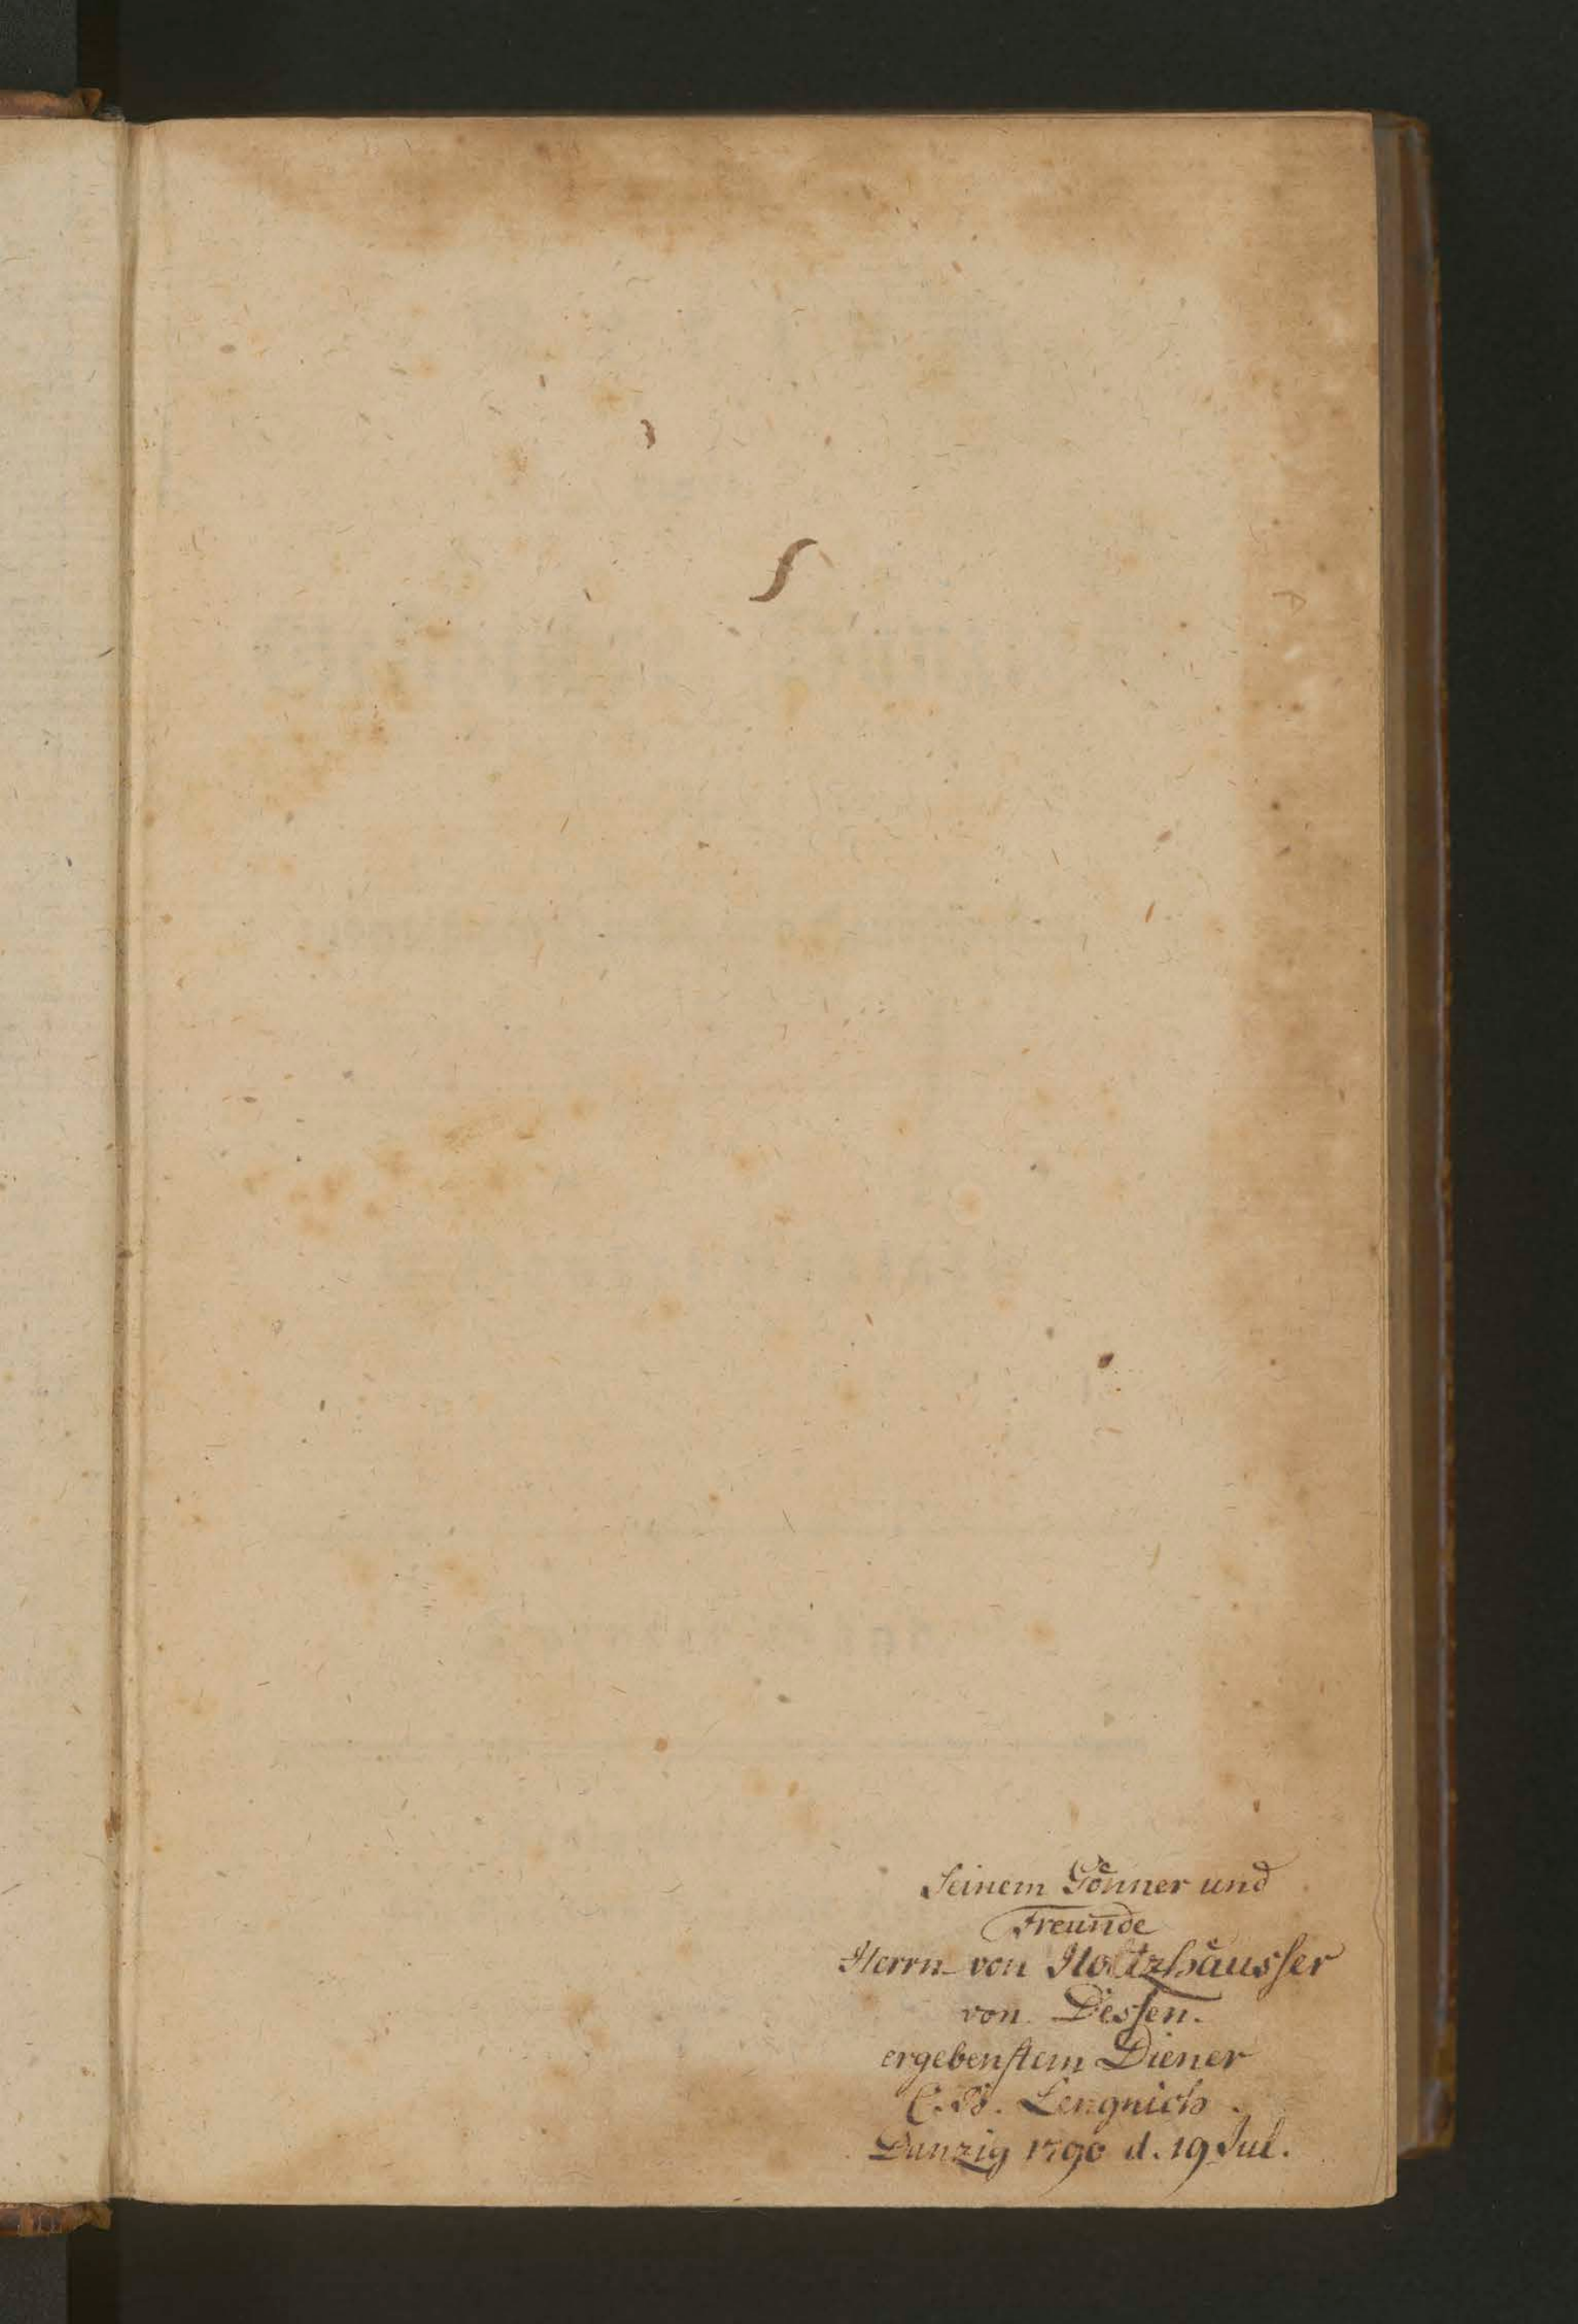 Seinem Gönner und
Freunde
Herrn von Holtzhäusser
von Dessen.
ergebenstem Diener
C. B. Lengnich.
Danzig 1790 d. 19 Jul.